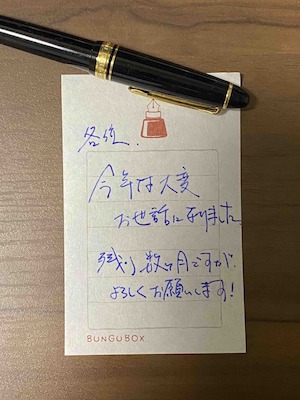 各位.
今年は大変
お世話になりました
残り数ヶ月ですが、
よろしくお願いします!
BUNGUBOX